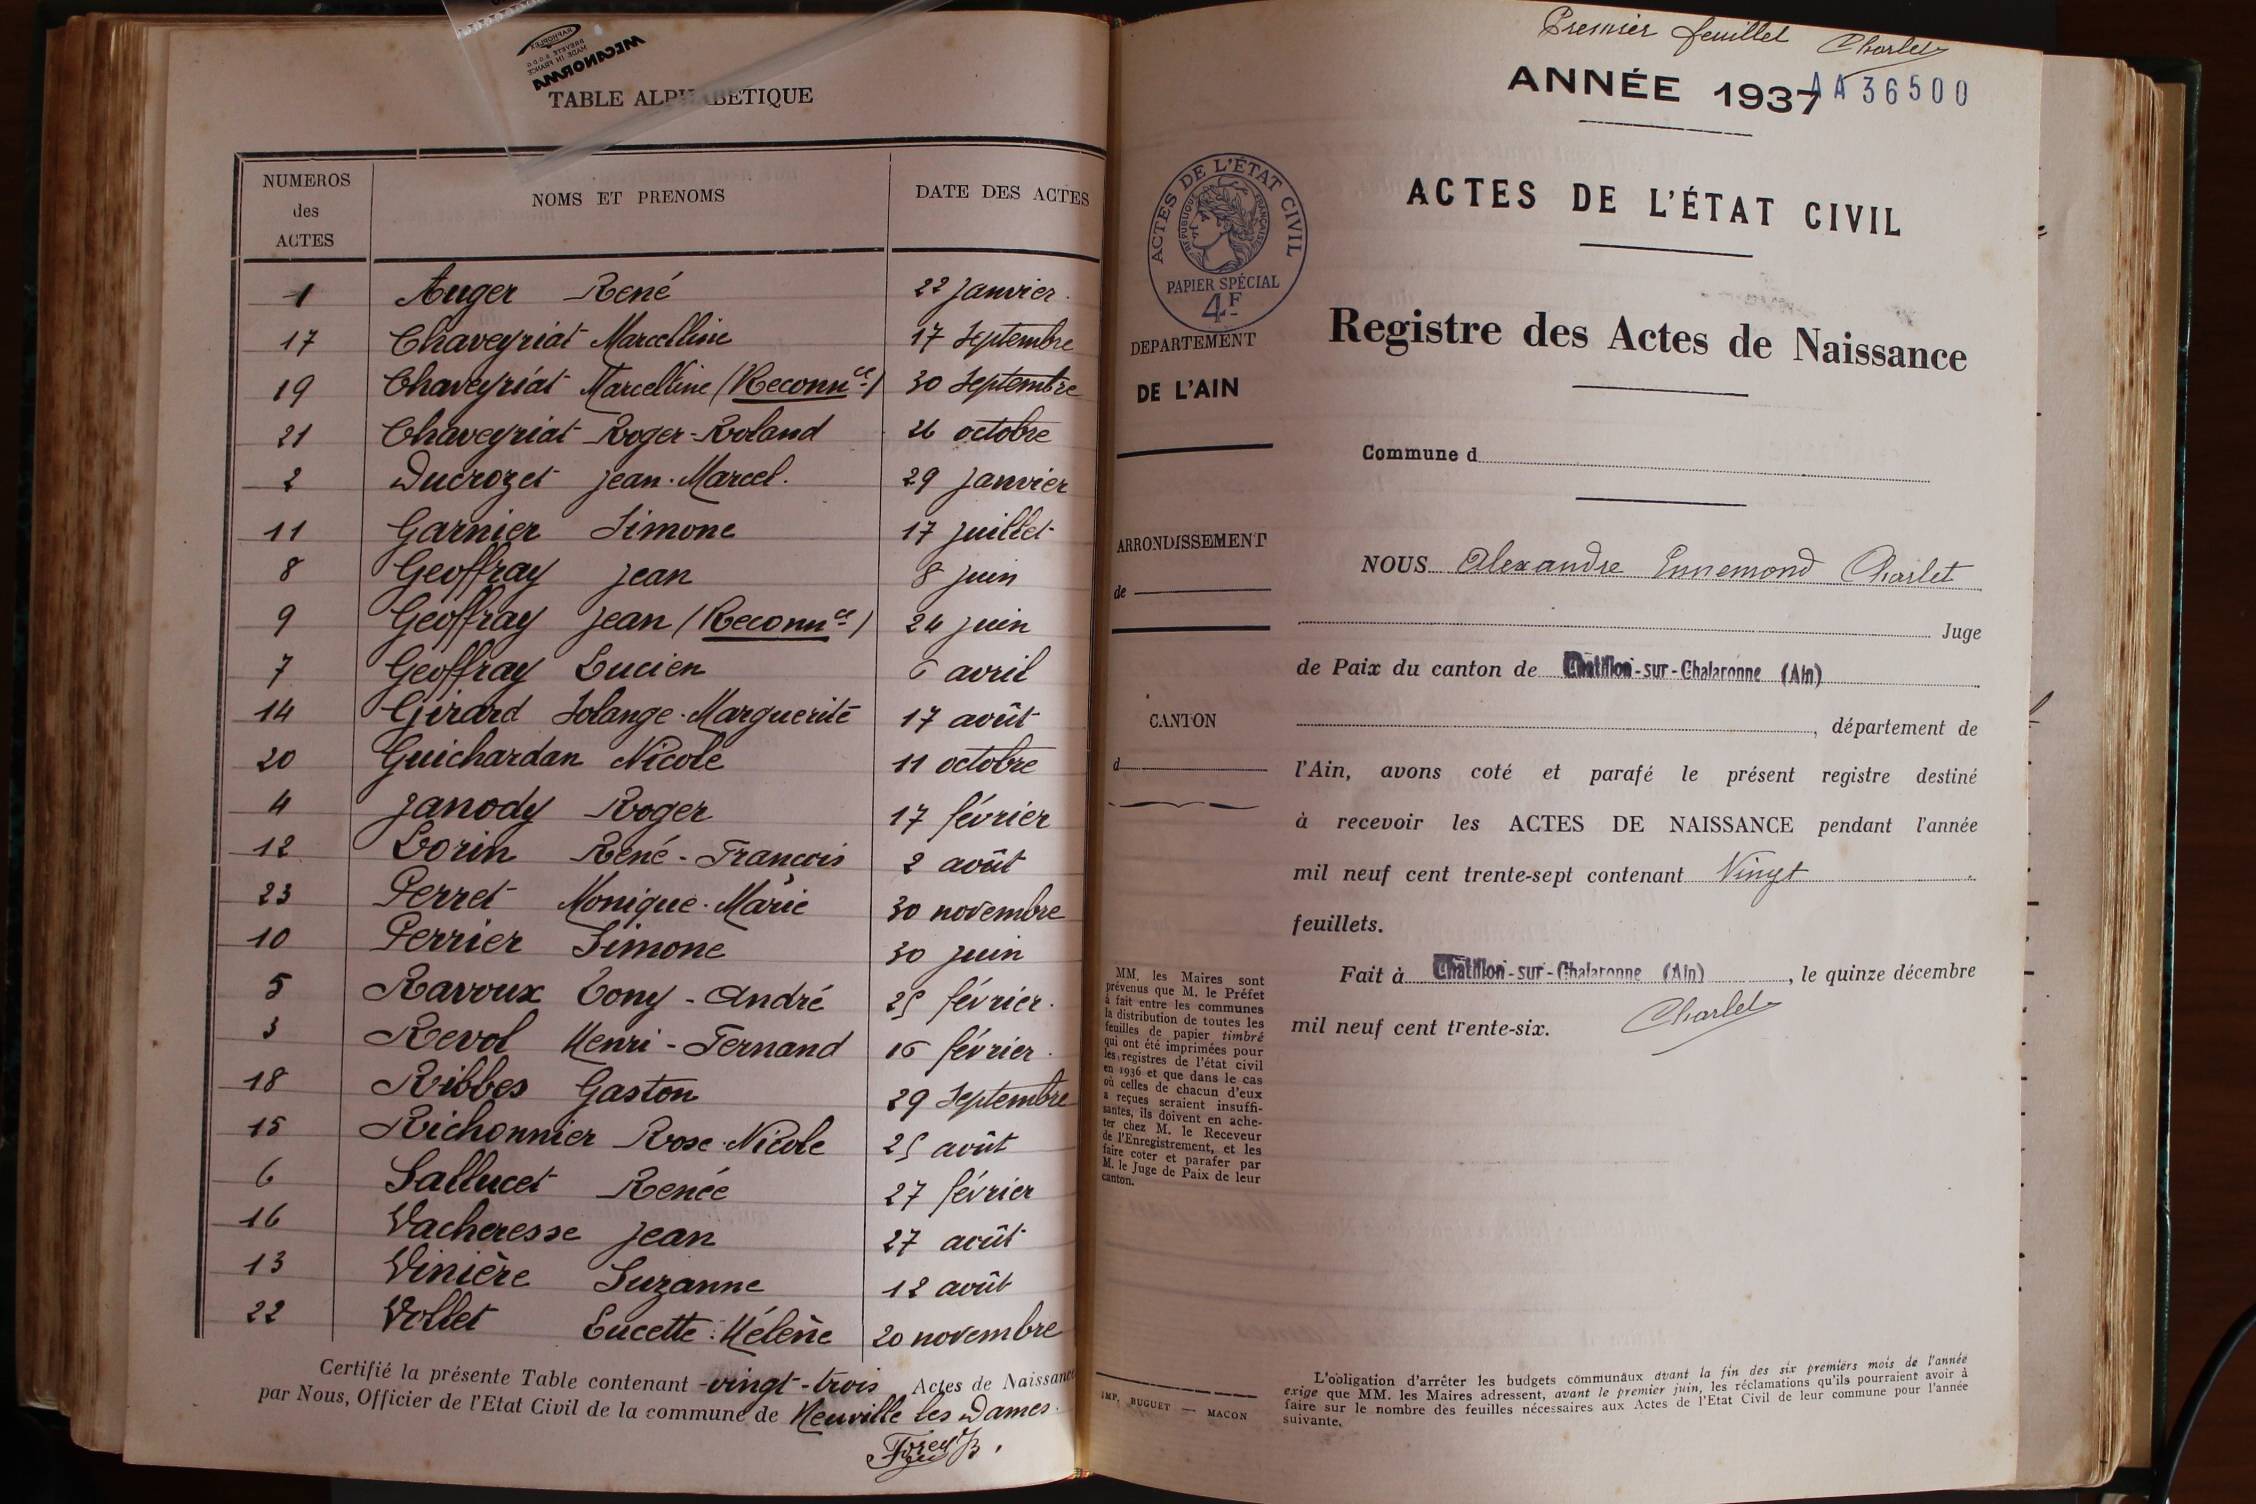 MECANORMA
RAPHOPLEX
BREVETÉ S.G.D.G.
MADE IN FRANCE
TABLE ALPHABETIQUE
NUMEROS des ACTES NOMS ET PRENOMS DATE DES ACTES
1 Auger René 22 janvier.
17 Chaveyriat Marcelline 17 Septembre
19 Chaveyriat Marcelline (Reconnce) 30 Septembre
21 Chaveyriat Roger-Roland 26 octobre
2 Ducrozet Jean-Marcel. 29 janvier
11 Garnier Simone 17 juillet
8 Geoffray Jean 8 juin
9 Geoffray Jean (Reconnce) 24 juin
7 Geoffray Lucien 6 avril
14 Girard Solange-Marguerite 17 août
20 Guichardan Nicole 11 octobre
4 Janody Roger 17 février
12 Lorin René-François 2 août
23 Perret Monique-Marie 30 novembre
10 Perrier Simone 30 juin
5 Ravoux Tony-André 25 février.
3 Revol Henri-Fernand 16 février.
18 Ribbes Gaston 29 Septembre
15 Richonnier Rose-Nicole 25 août
6 Sallucet Renée 27 février
16 Vacheresse Jean 27 août
13 Vinière Suzanne 12 août
22 Vollet Lucette-Hélène 20 novembre
Certifié la présente Table contenant -vingt-trois Actes de Naissance
par Nous, Officier de l'Etat Civil de la commune de Neuville les Dames.
Premier feuillet Charlet
ANNÉE 1937 AA 36500
ACTES DE L'ÉTAT CIVIL
RÉPUBLIQUE FRANÇAISE
PAPIER SPÉCIAL
4F
DEPARTEMENT
DE L'AIN
ARRONDISSEMENT
de
CANTON
d
MM. les Maires sont
prévenus que M. le Préfet
a fait entre les communes
la distribution de toutes les
feuilles de papier timbré
qui ont été imprimées pour
les registres de l'état civil
en 1936 et que dans le cas
où celles de chacun d'eux
a reçues seraient insuffi-
santes, ils doivent en ache-
ter chez M. le Receveur
de l'Enregistrement, et les
faire coter et parafer par
M. le Juge de Paix de leur
canton.
IMP. BUGUET — MACON
ACTES DE L'ÉTAT CIVIL
Registre des Actes de Naissance
Commune d
NOUS Alexandre Ennemond Charlet
Juge
de Paix du canton de Chatillon-sur-Chalaronne (Ain)
, département de
l'Ain, avons coté et parafé le présent registre destiné
à recevoir les ACTES DE NAISSANCE pendant l'année
mil neuf cent trente-sept contenant Vingt
feuillets.
Fait à Chatillon-sur-Chalaronne (Ain), le quinze décembre
mil neuf cent trente-six. Charlet
L'obligation d'arrêter les budgets communaux avant la fin des six premiers mois de l'année
exige que MM. les Maires adressent, avant le premier juin, les réclamations qu'ils pourraient avoir à
faire sur le nombre des feuilles nécessaires aux Actes de l'Etat Civil de leur commune pour l'année
suivante.